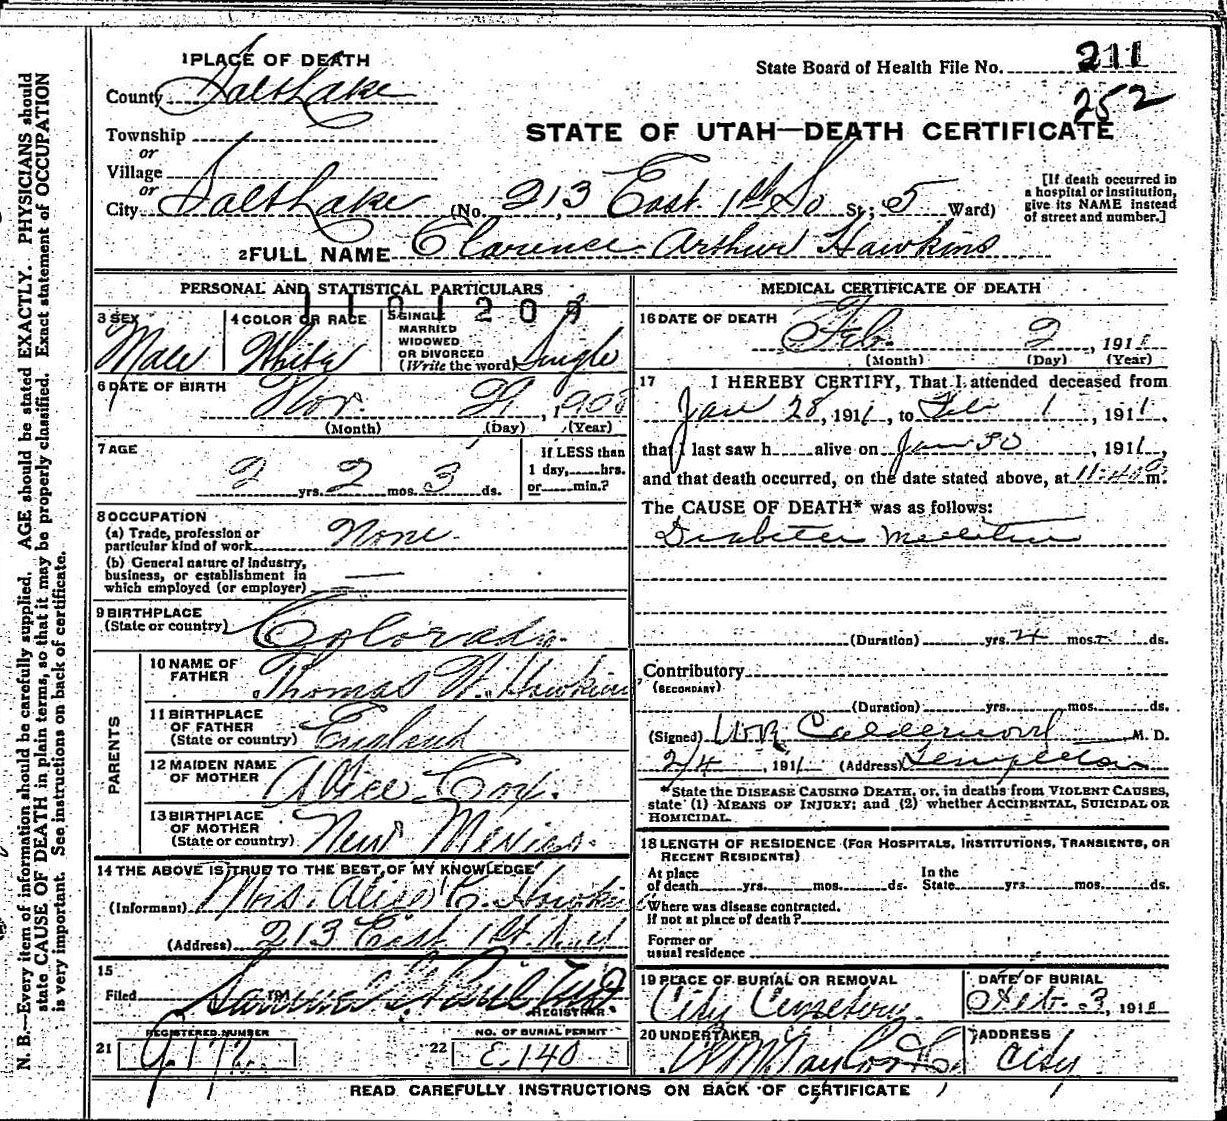 1 PLACE OF DEATH
State Board of Health File No. 211
252
County Salt Lake
STATE OF UTAH—DEATH CERTIFICATE
Township
or
Village
or
City Salt Lake (No. 213 East 1st So St; 5 Ward)
[If death occurred in
a hospital or institution,
give its NAME instead
of street and number.]
2 FULL NAME Clarence Arthur Hawkins
PERSONAL AND STATISTICAL PARTICULARS
1101209
3 SEX Male
4 COLOR OR RACE White
5 SINGLE
MARRIED
WIDOWED
OR DIVORCED
(Write the word) Single
6 DATE OF BIRTH
Nov. 29, 1908
(Month) (Day) (Year)
7 AGE
2 yrs. 2 mos. 3 ds.
If LESS than
1 day, hrs.
or min.?
8 OCCUPATION
(a) Trade, profession or
particular kind of work None
(b) General nature of industry,
business, or establishment in
which employed (or employer)
9 BIRTHPLACE
(State or country) Colorado.
PARENTS
10 NAME OF
FATHER Thomas W. Hawkins
11 BIRTHPLACE
OF FATHER
(State or country) England
12 MAIDEN NAME
OF MOTHER Alice Cox.
13 BIRTHPLACE
OF MOTHER
(State or country) New Mexico.
14 THE ABOVE IS TRUE TO THE BEST OF MY KNOWLEDGE
(Informant) Mrs. Alice C. Hawkins
(Address) 213 East 1st
15
Filed 191
REGISTRAR
21 REGISTERED NUMBER
22 NO. OF BURIAL PERMIT
E.140
MEDICAL CERTIFICATE OF DEATH
16 DATE OF DEATH
Feb. 2, 1911
(Month) (Day) (Year)
17 I HEREBY CERTIFY, That I attended deceased from
Jan 28, 1911, to Feb 1, 1911,
that I last saw h alive on Jan 30, 1911,
and that death occurred, on the date stated above, at m.
The CAUSE OF DEATH* was as follows:
Diabetes Mellitus
(Duration) yrs. mos. ds.
Contributory
(SECONDARY)
(Duration) yrs. mos. ds.
(Signed) Calderwood M. D.
2/4, 1911 (Address) Templeton
*State the DISEASE CAUSING DEATH, or, in deaths from VIOLENT CAUSES,
state (1) MEANS OF INJURY; and (2) whether ACCIDENTAL, SUICIDAL OR
HOMICIDAL.
18 LENGTH OF RESIDENCE (FOR HOSPITALS, INSTITUTIONS, TRANSIENTS, OR
RECENT RESIDENTS)
At place
of death yrs. mos. ds.
In the
State yrs. mos. ds.
Where was disease contracted.
if not at place of death?
Former or
usual residence
19 PLACE OF BURIAL OR REMOVAL
City Cemetery.
DATE OF BURIAL
Feb. 3, 1911
20 UNDERTAKER
ADDRESS
City
READ CAREFULLY INSTRUCTIONS ON BACK OF CERTIFICATE
N. B.—Every item of information should be carefully supplied. AGE should be stated EXACTLY. PHYSICIANS should
state CAUSE OF DEATH in plain terms, so that it may be properly classified. Exact statement of OCCUPATION
is very important. See instructions on back of certificate.